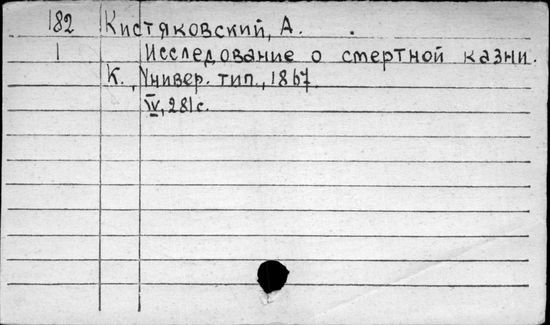 182 Кистяковский, А.
1 Исследование о смертной казни.
К., Универ. тип., 1867.
IV, 281 с.